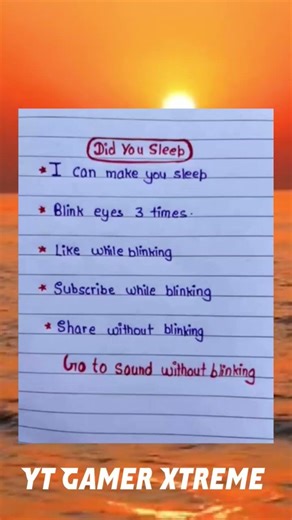 Did You Sleep
* I can make you sleep
* Blink eyes 3 times.
* Like while blinking
* Subscribe while blinking
* Share without blinking
Go to sound without blinking
YT GAMER XTREME